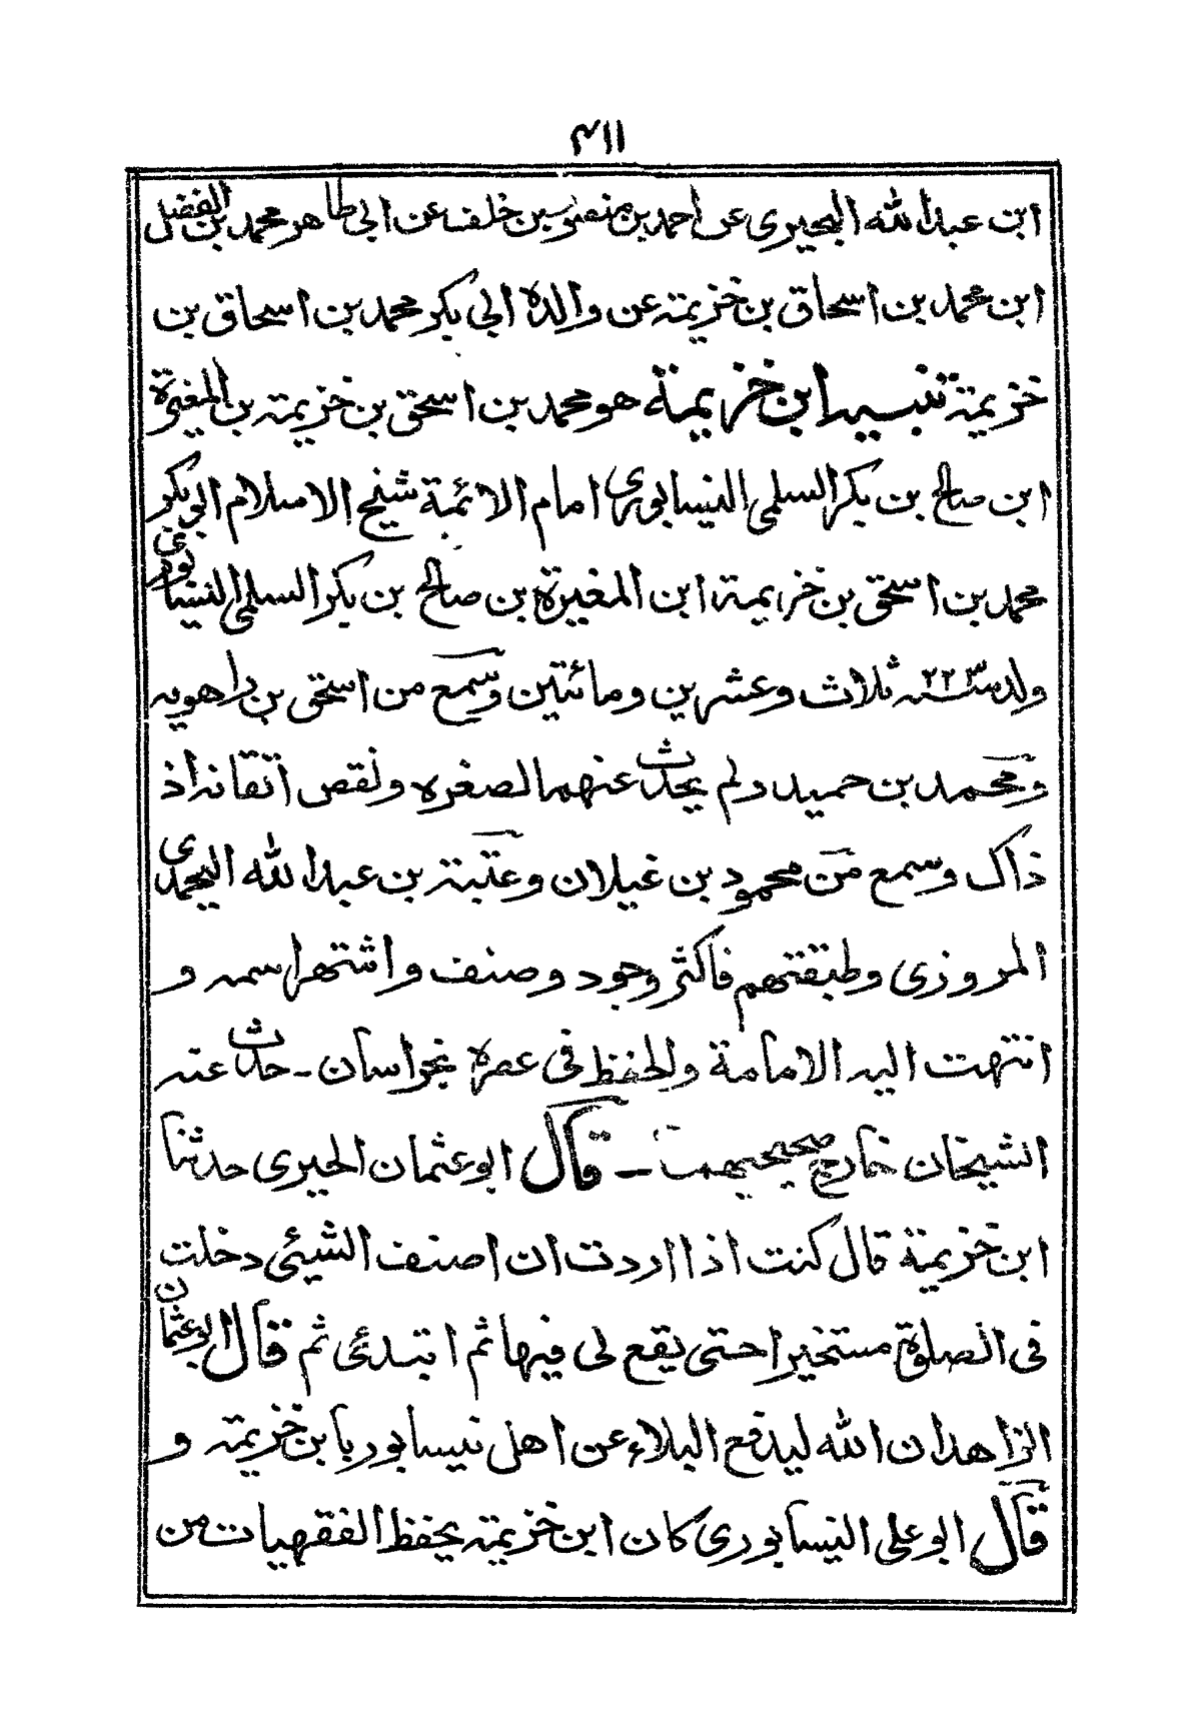 ۴۱۱
ابن عبدالله البحیری عن احمد بن منصور بن خلف عن ابی طاهر محمد بن الفضل
ابن محمد بن اسحاق بن خزیمة عن والده ابی بکر محمد بن اسحاق بن
خزیمة تنبیه ابن خزیمة هو محمد بن اسحق بن خزیمة بن المغیرة
ابن صالح بن بکر السلمی النیسابوری امام الائمة شیخ الاسلام ابوبکر
محمد بن اسحق بن خزیمة ابن المغیرة بن صالح بن بکر السلمی النیسابوری
ولد سنة ۲۲۳ ثلاث وعشرین ومائتین وسمع من اسحق بن راهویه
ومحمد بن حمید ولم یحدث عنهما لصغره ونقص اتقانه اذ
ذاک وسمع من محمود بن غیلان وعتبة بن عبدالله الیحمدی
المروزی وطبقتهم فاکثر وجود وصنف واشتهر اسمه و
انتهت الیه الامامة والحفظ فی عصره بخراسان - حدث عنه
الشیخان خارج صحیحیهما - قال ابوعثمان الحیری حدثنا
ابن خزیمة قال کنت اذا اردت ان اصنف الشیئی دخلت
فی الصلوة مستخیرا حتی یقع لی فیها ثم ابتدئی ثم قال ابوعثمان
الزاهد ان الله لیدفع البلاء عن اهل نیسابور بابن خزیمة و
قال ابوعلی النیسابوری کان ابن خزیمة یحفظ الفقهیات من